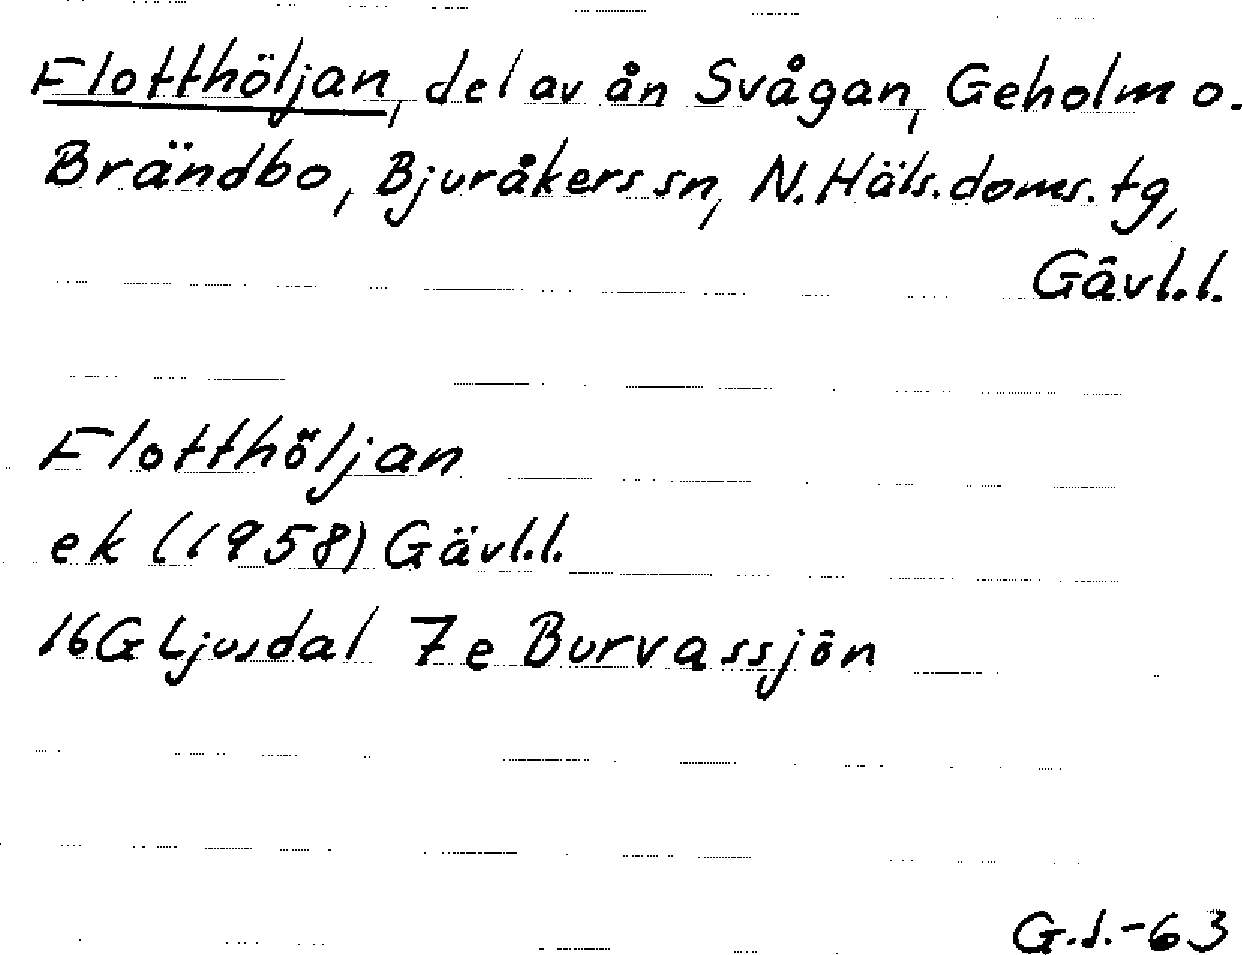 Flotthöljan, del av ån Svågan, Geholm o.
Brändbo, Bjuråkers sn, N. Häls. doms. tg,
Gävl.l.
Flotthöljan
ek (1958) Gävl.l.
16G Ljusdal 7e Burvassjön
G.S.-63